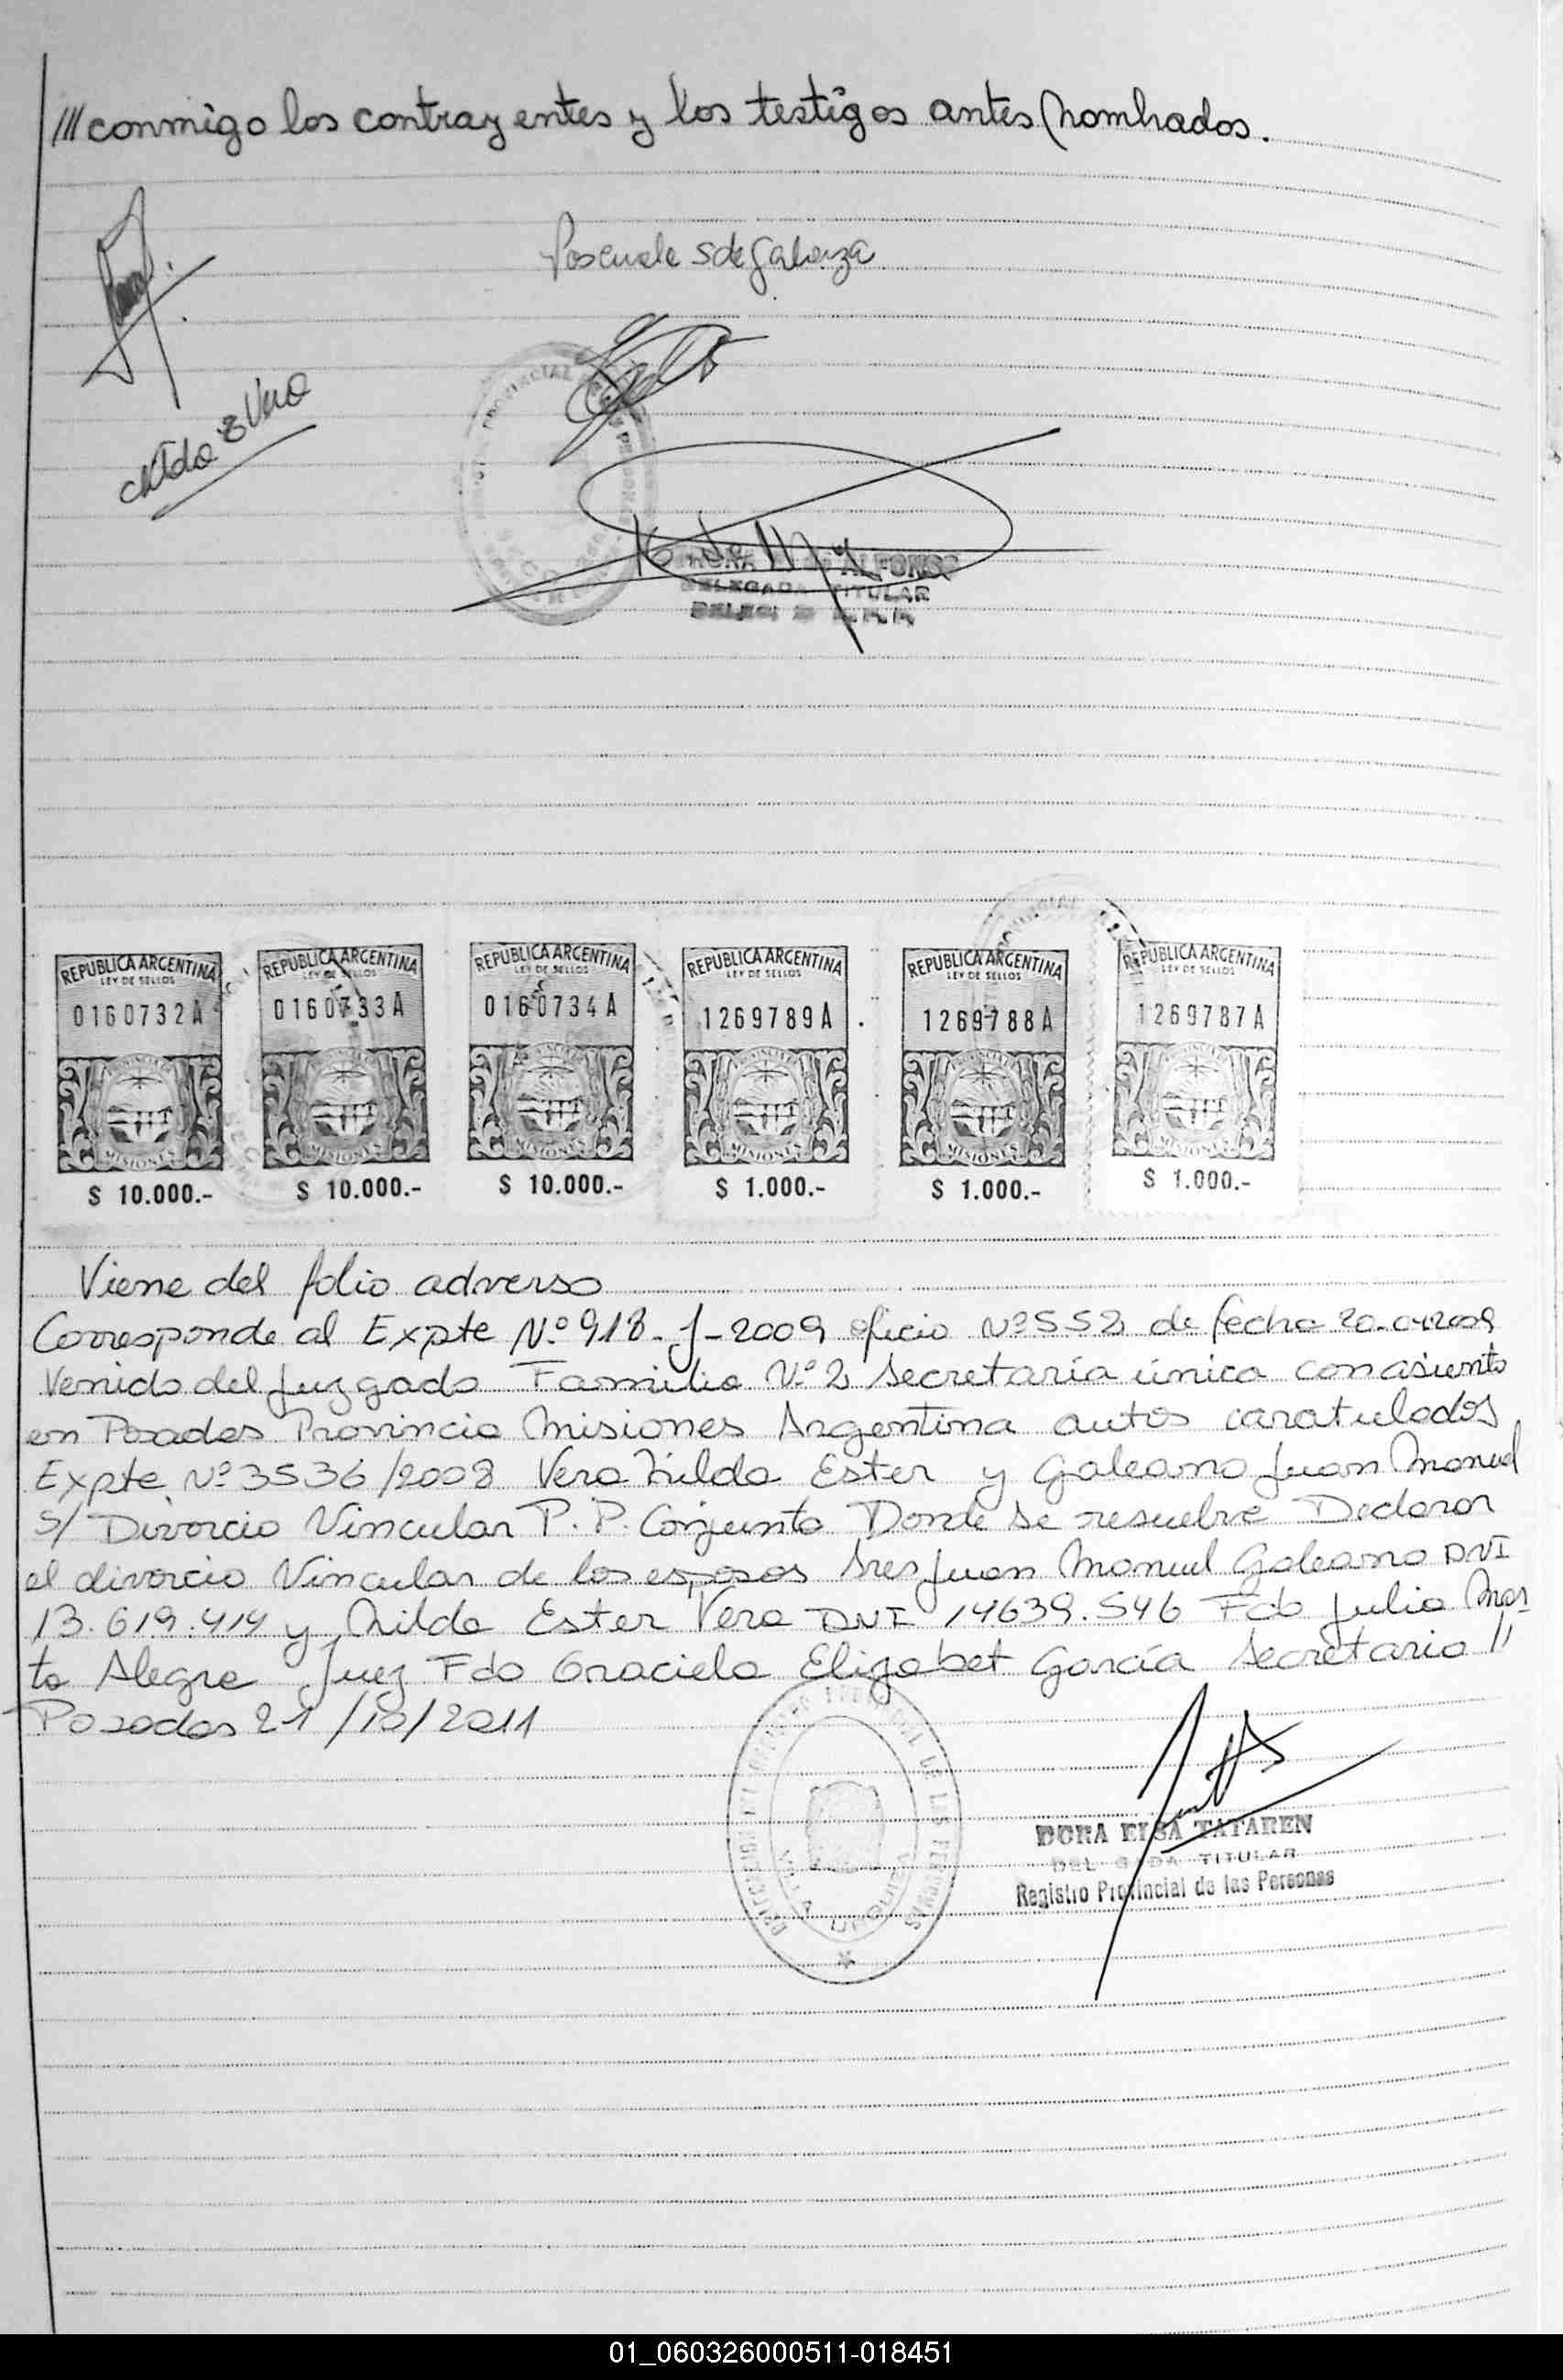 ///conmigo los contrayentes y los testigos antes nombrados.
Nilda E Vera
ALFONSO
DELEGADA TITULAR
REPUBLICA ARGENTINA REPUBLICA ARGENTINA REPUBLICA ARGENTINA REPUBLICA ARGENTINA REPUBLICA ARGENTINA REPUBLICA ARGENTINA
LEY DE SELLOS LEY DE SELLOS LEY DE SELLOS LEY DE SELLOS LEY DE SELLOS LEY DE SELLOS
0160732A 0160733A 0160734A 1269789A 1269788A 1269787A
MISIONES MISIONES MISIONES MISIONES MISIONES MISIONES
$ 10.000.- $ 10.000.- $ 10.000.- $ 1.000.- $ 1.000.- $ 1.000.-
Viene del folio adverso
Corresponde al Expte Nº 918-J-2009 oficio Nº 552 de fecha
Venido del Juzgado Familia Nº 2 Secretaría única con asiento
en Posadas Provincia Misiones Argentina autos caratulados
Expte Nº 3536/2008 Vera Nilda Ester y Galeano Juan Manuel
S/ Divorcio Vincular P.P. Conjunta Donde se resuelve Declarar
el divorcio Vincular de los esposos Sres Juan Manuel Galeano DNI
13.619.414 y Nilda Ester Vera DNI 14639.546 Fdo Julia Mar-
ta Alegre Juez Fdo Graciela Elizabet García Secretaria"
Posadas 21/10/2011
DORA ELSA TATAREN
DELEGADA TITULAR
Registro Provincial de las Personas
01_060326000511-018451